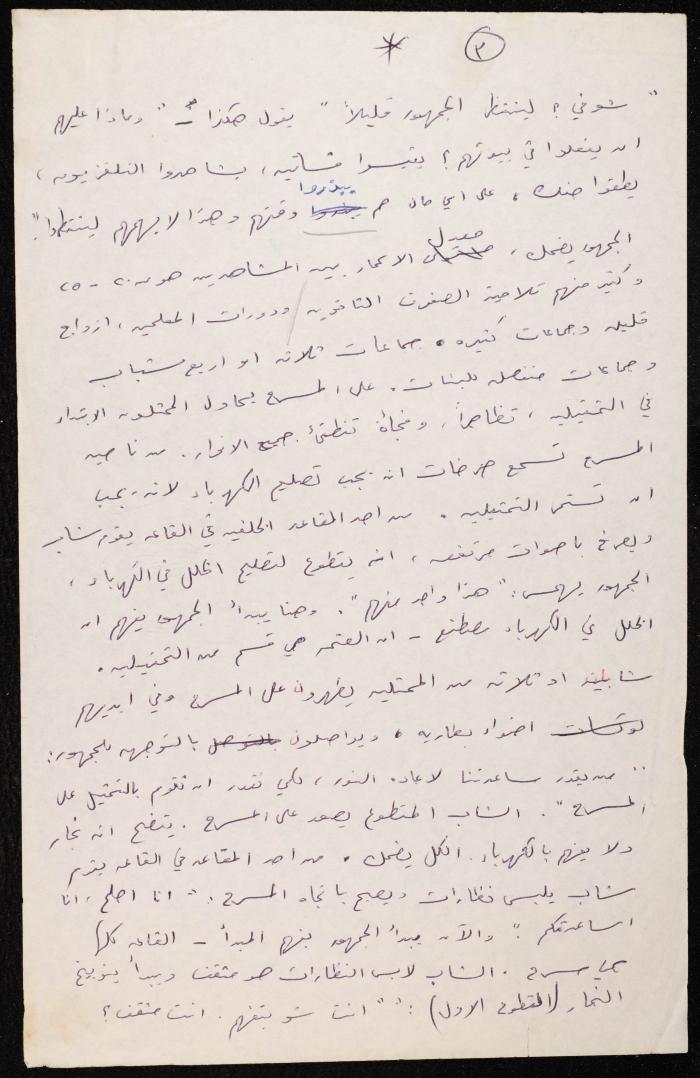 * ٢
" شو في ؟ لينتظر الجمهور قليلاً " يقول هكذا – " وماذا عليهم
ان يفعلوا في بيوتهم ؟ يقيسوا فساتين ، يشاهدوا التلفزيون ،
يطقوا حنك ، على اي حال هم يبذروا وقتهم وهذا لا يهمهم لينتظروا ".
الجمهور يضحك ، معدل الاعمار بين المشاهدين هو من ٢٠ - ٢٥
وكثير منهم تلاميذ الصفوف الثانوية ودورات المعلمين ، ازواج
قليله وجماعات كثيره . جماعات ثلاثه او اربع شباب
وجماعات منفصله للبنات . على المسرح يحاول الممثلون الابتداء
في التمثيليه ، تظاهراً ، وفجأة تنطفئ جميع الانوار . من ناحية
المسرح تسمع صرخات انه يجب تصليح الكهرباء لانه يجب
ان تستمر التمثيليه . من احد المقاعد الخلفيه في القاعه يقوم شاب
ويصرخ باصوات مرتفعه ، انه يتطوع لتصليح الخلل في الكهرباء ،
الجمهور يهمس : " هذا واحد منهم " . وهنا يبدأ الجمهور يفهم ان
الخلل في الكهرباء مصطنع – ان العتمه هي قسم من التمثيليه .
شابين او ثلاثه من الممثلين يظهرون على المسرح وفي ايديهم
لوتشات اضواء بطاريه ، ويواصلون بالتوجه للجمهور :
" من يقدر مساعدتنا لاعاده النور ، لكي نقدر ان نقوم بالتمثيل على
المسرح " . الشاب المتطوع يصعد على المسرح . يتضح انه نجار
ولا يفهم بالكهرباء . الكل يضحك . من احد المقاعد في القاعه يقوم
شاب يلبس نظارات ويصيح باتجاه المسرح : " انا اصلح ، انا
اساعدكم " والآن يبدأ الجمهور بفهم المبدأ – القاعه كلها
هي مسرح . الشاب لابس النظارات هو مثقف ويبدأ بتوبيخ
النجار ( المتطوع الاول ) : " " انت شو بتفهم . انت مثقف ؟